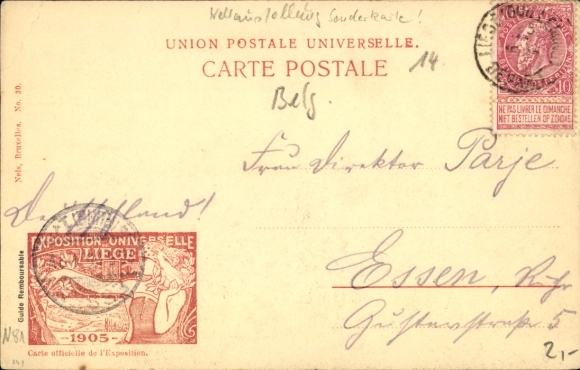 Weltausstellung Sonderkarte!
UNION POSTALE UNIVERSELLE.
CARTE POSTALE
14.
Belg.
10
NE PAS LIVRER LE DIMANCHE
NIET BESTELLEN OP ZONDAG
Nels, Bruxelles. No. 20.
Frau Direktor Parje
Deutschland!
Essen, Ruhr
Gutenbergstraße 5
Guide Remboursable
EXPOSITION UNIVERSELLE
LIEGE
1905
Carte officielle de l'Exposition.
N81
2,-